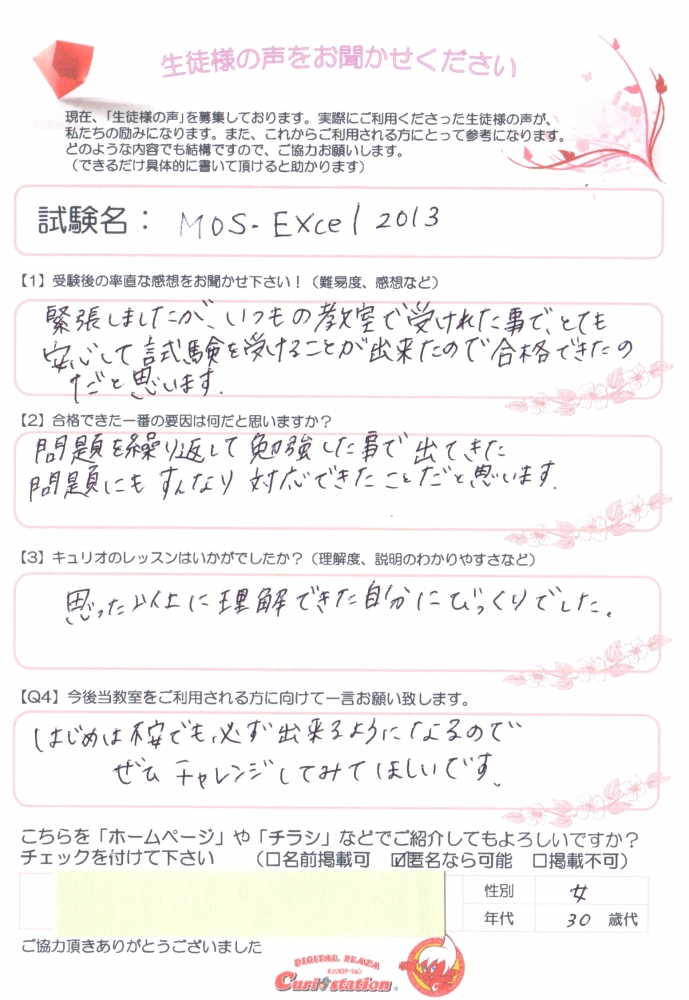 生徒様の声をお聞かせください
現在、「生徒様の声」を募集しております。実際にご利用くださった生徒様の声が、
私たちの励みになります。また、これからご利用される方にとって参考になります。
どのような内容でも結構ですので、ご協力お願いします。
（できるだけ具体的に書いて頂けると助かります）
試験名： MOS-Excel 2013
【1】受験後の率直な感想をお聞かせ下さい！（難易度、感想など）
緊張しましたが、いつもの教室で受けれた事で、とても
安心して試験を受けることが出来たので合格できたの
だと思います。
【2】合格できた一番の要因は何だと思いますか？
問題を繰り返して勉強した事で出てきた
問題にもすんなり対応できたことだと思います。
【3】キュリオのレッスンはいかがでしたか？（理解度、説明のわかりやすさなど）
思った以上に理解できた自分にびっくりでした。
【Q4】今後当教室をご利用される方に向けて一言お願い致します。
はじめは不安でも、必ず出来るようになるので
ぜひチャレンジしてみてほしいです。
こちらを「ホームページ」や「チラシ」などでご紹介してもよろしいですか？
チェックを付けて下さい （□名前掲載可 ☑匿名なら可能 □掲載不可）
性別 女
年代 30 歳代
ご協力頂きありがとうございました
DIGITAL PLAZA
キュリオステーション
Curio station